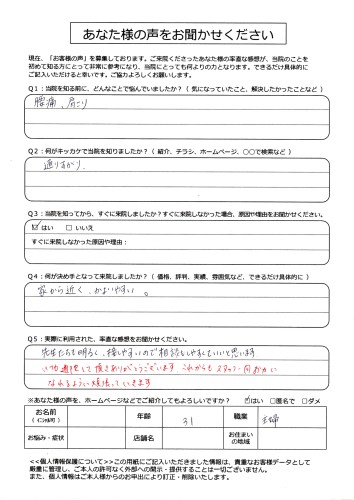 あなた様の声をお聞かせください
現在、「お客様の声」を募集しております。ご来院くださったあなた様の率直な感想が、当院のことを
初めて知る方にとって非常に参考になり、当院にとっても何よりの力となります。できるだけ具体的に
ご記入いただけると幸いです。ご協力よろしくお願いします。
Q1：当院を知る前に、どんなことで悩んでいましたか？（気になっていたこと、解決したかったことなど）
腰痛、肩こり
Q2：何がキッカケで当院を知りましたか？（紹介、チラシ、ホームページ、○○で検索など）
通りすがり
Q3：当院を知ってから、すぐに来院しましたか？すぐに来院しなかった場合、原因や理由をお聞かせください。
☑はい　□いいえ
すぐに来院しなかった原因や理由：
Q4：何が決め手となって来院しましたか？（価格、評判、実績、雰囲気など、できるだけ具体的に）
家から近く、かよいやすい。
Q5：実際に利用された、率直な感想をお聞かせください。
先生たちも明るく、接しやすいので相談もしやすくていいと思います
いつも通院して頂きありがとうございます。これからもスタッフ一同
なれるよう頑張っていきます
※あなた様の声を、ホームページなどでご紹介してもよろしいですか？　☑はい　□匿名で　□ダメ
お名前
（イニシャル可）
年齢
31
職業
主婦
お悩み・症状
店舗名
お住まい
の地域
<<個人情報保護について>>この用紙にご記入いただきました情報は、貴重なお客様データとして
厳重に管理し、ご本人の許可なく外部への開示・提供することは一切ございません。
また、個人情報はご本人様からのお申出により訂正・削除いたします。